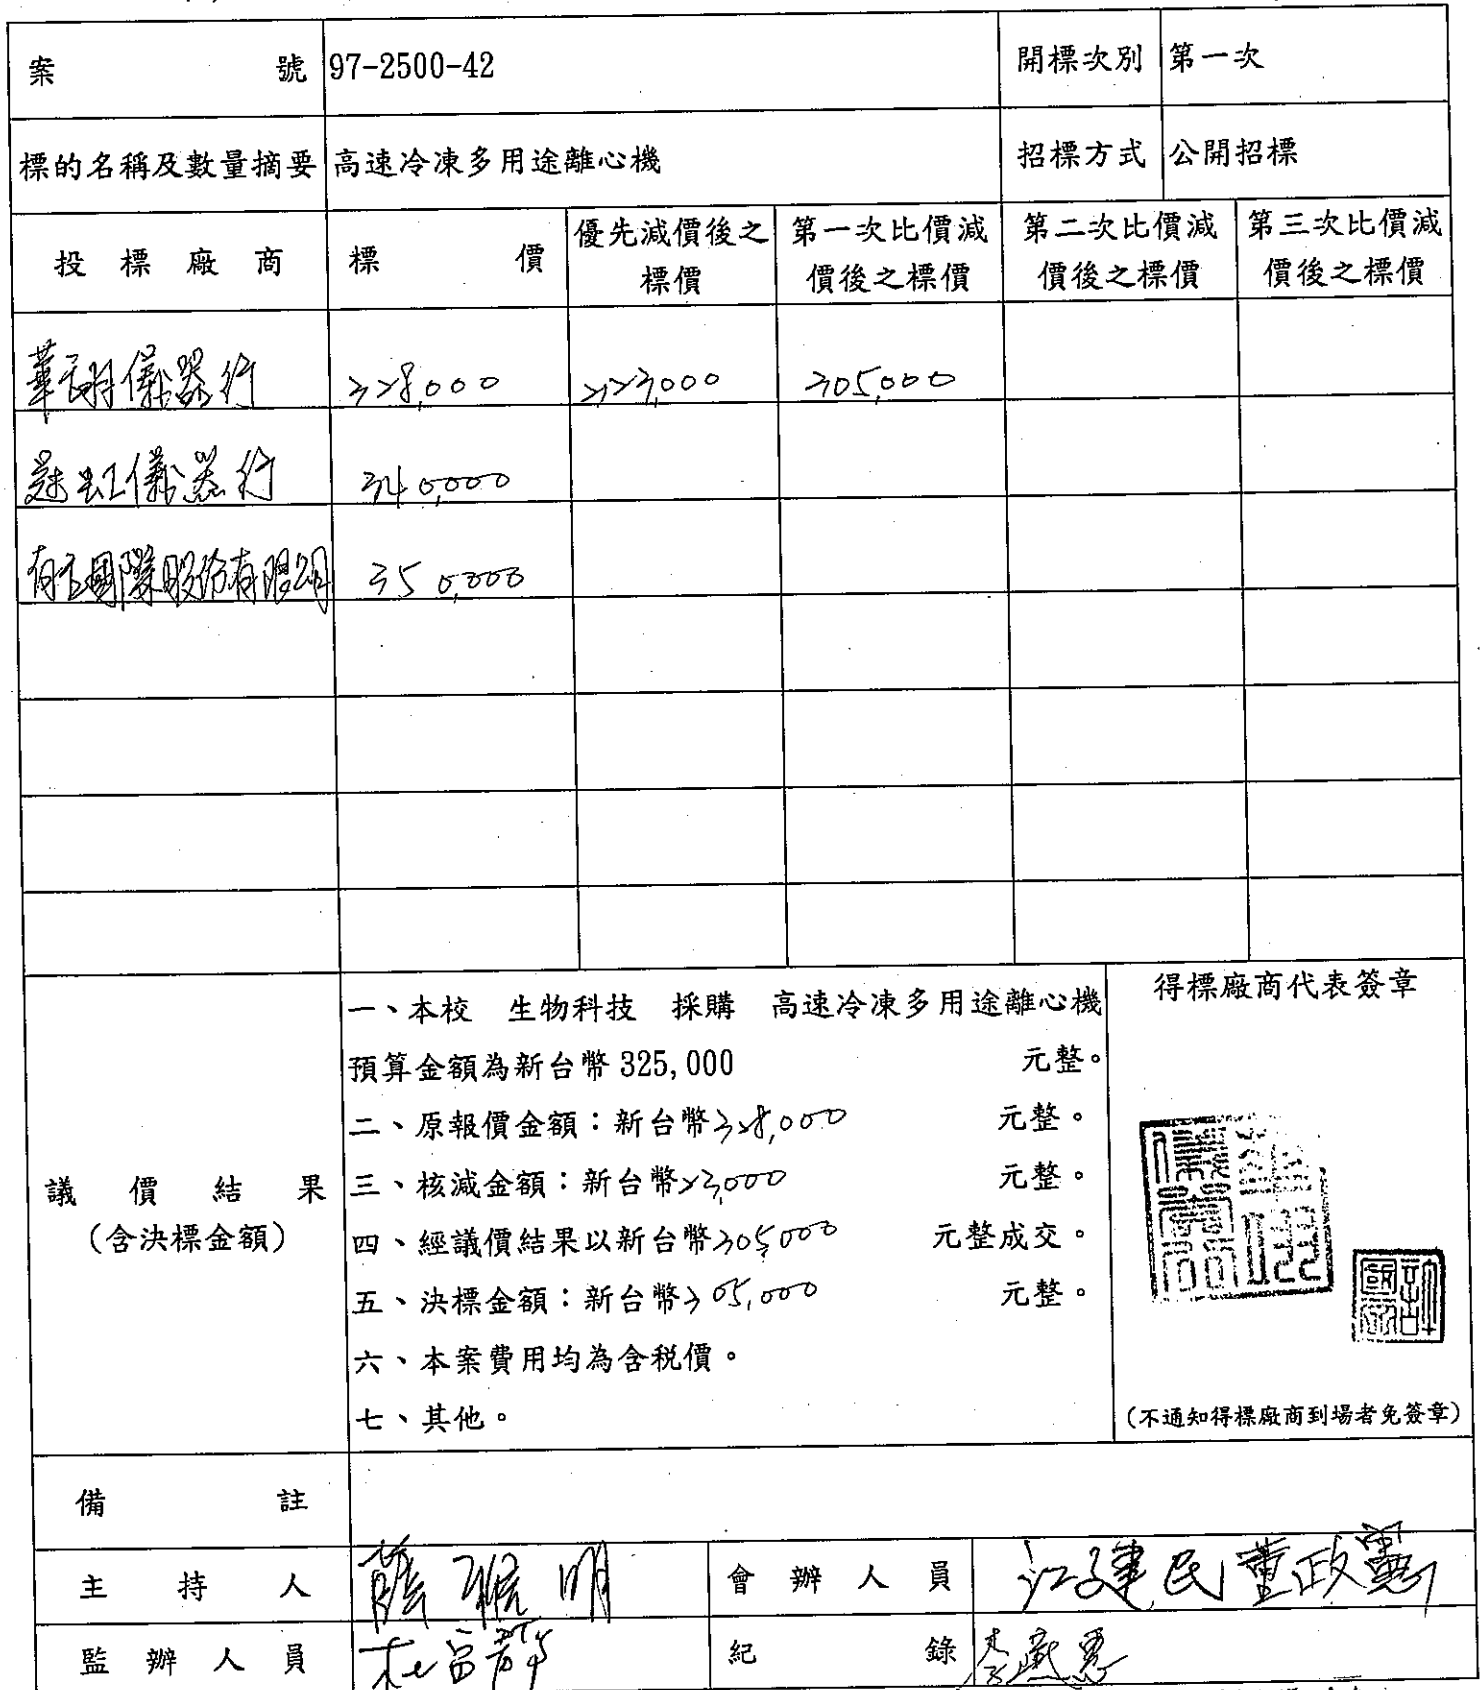 案 號 97-2500-42 開標次別 第一次
標的名稱及數量摘要 高速冷凍多用途離心機 招標方式 公開招標
投標廠商 標 價 優先減價後之標價 第一次比價減價後之標價 第二次比價減價後之標價 第三次比價減價後之標價
儀器行 328,000 305,000
儀器行 340,000
國際股份有限公司 350,000
一、本校 生物科技 採購 高速冷凍多用途離心機
預算金額為新台幣 325,000 元整。
二、原報價金額：新台幣328,000 元整。
議價結果
(含決標金額)
三、核減金額：新台幣23,000 元整。
四、經議價結果以新台幣305,000 元整成交。
五、決標金額：新台幣305,000 元整。
六、本案費用均為含稅價。
七、其他。
得標廠商代表簽章
(不通知得標廠商到場者免簽章)
備 註
主持人 會辦人員 江建民 董政
監辦人員 紀 錄